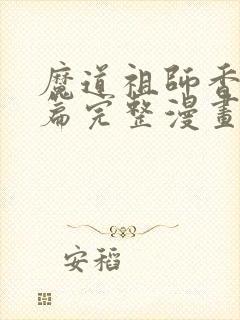 魔道祖師香
篇完整漫畫
安稻